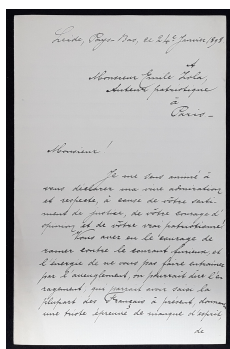 Leide, Pays-Bas, ce 24e Janvier 1898
A
Monsieur Emile Zola
Auteur patriotique
à
Paris.
Monsieur!
Je me sens animé à
vous déclarer ma vive admiration
et respect, à cause de vôtre senti-
ment de justice, de vôtre courage d'
opinion et de vôtre vrai patriotisme!
Vous avez eu le courage de
ramer contre le courant furieux et
l'énergie de ne vous pas faire entrainer
par l'aveuglement, on pourrait dire l'en-
ragement, qui parait avoir saisi la
plupart des Français à présent, donnant
une triste épreuve de manque d'esprit
de